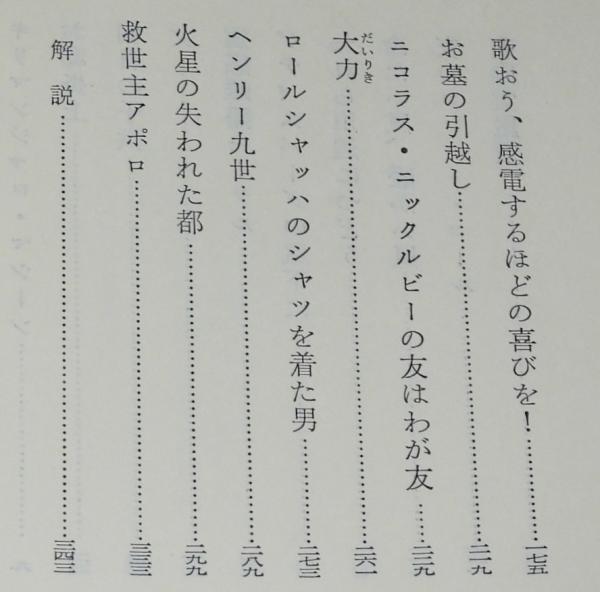 歌おう、感電するほどの喜びを!…………一七五
お墓の引越し…………二一九
ニコラス・ニックルビーの友はわが友……二二九
大力…………二六一
だいりき
ロールシャッハのシャツを着た男…………二七三
ヘンリー九世…………二八九
火星の失われた都…………二九九
救世主アポロ…………三三三
解説…………三四三